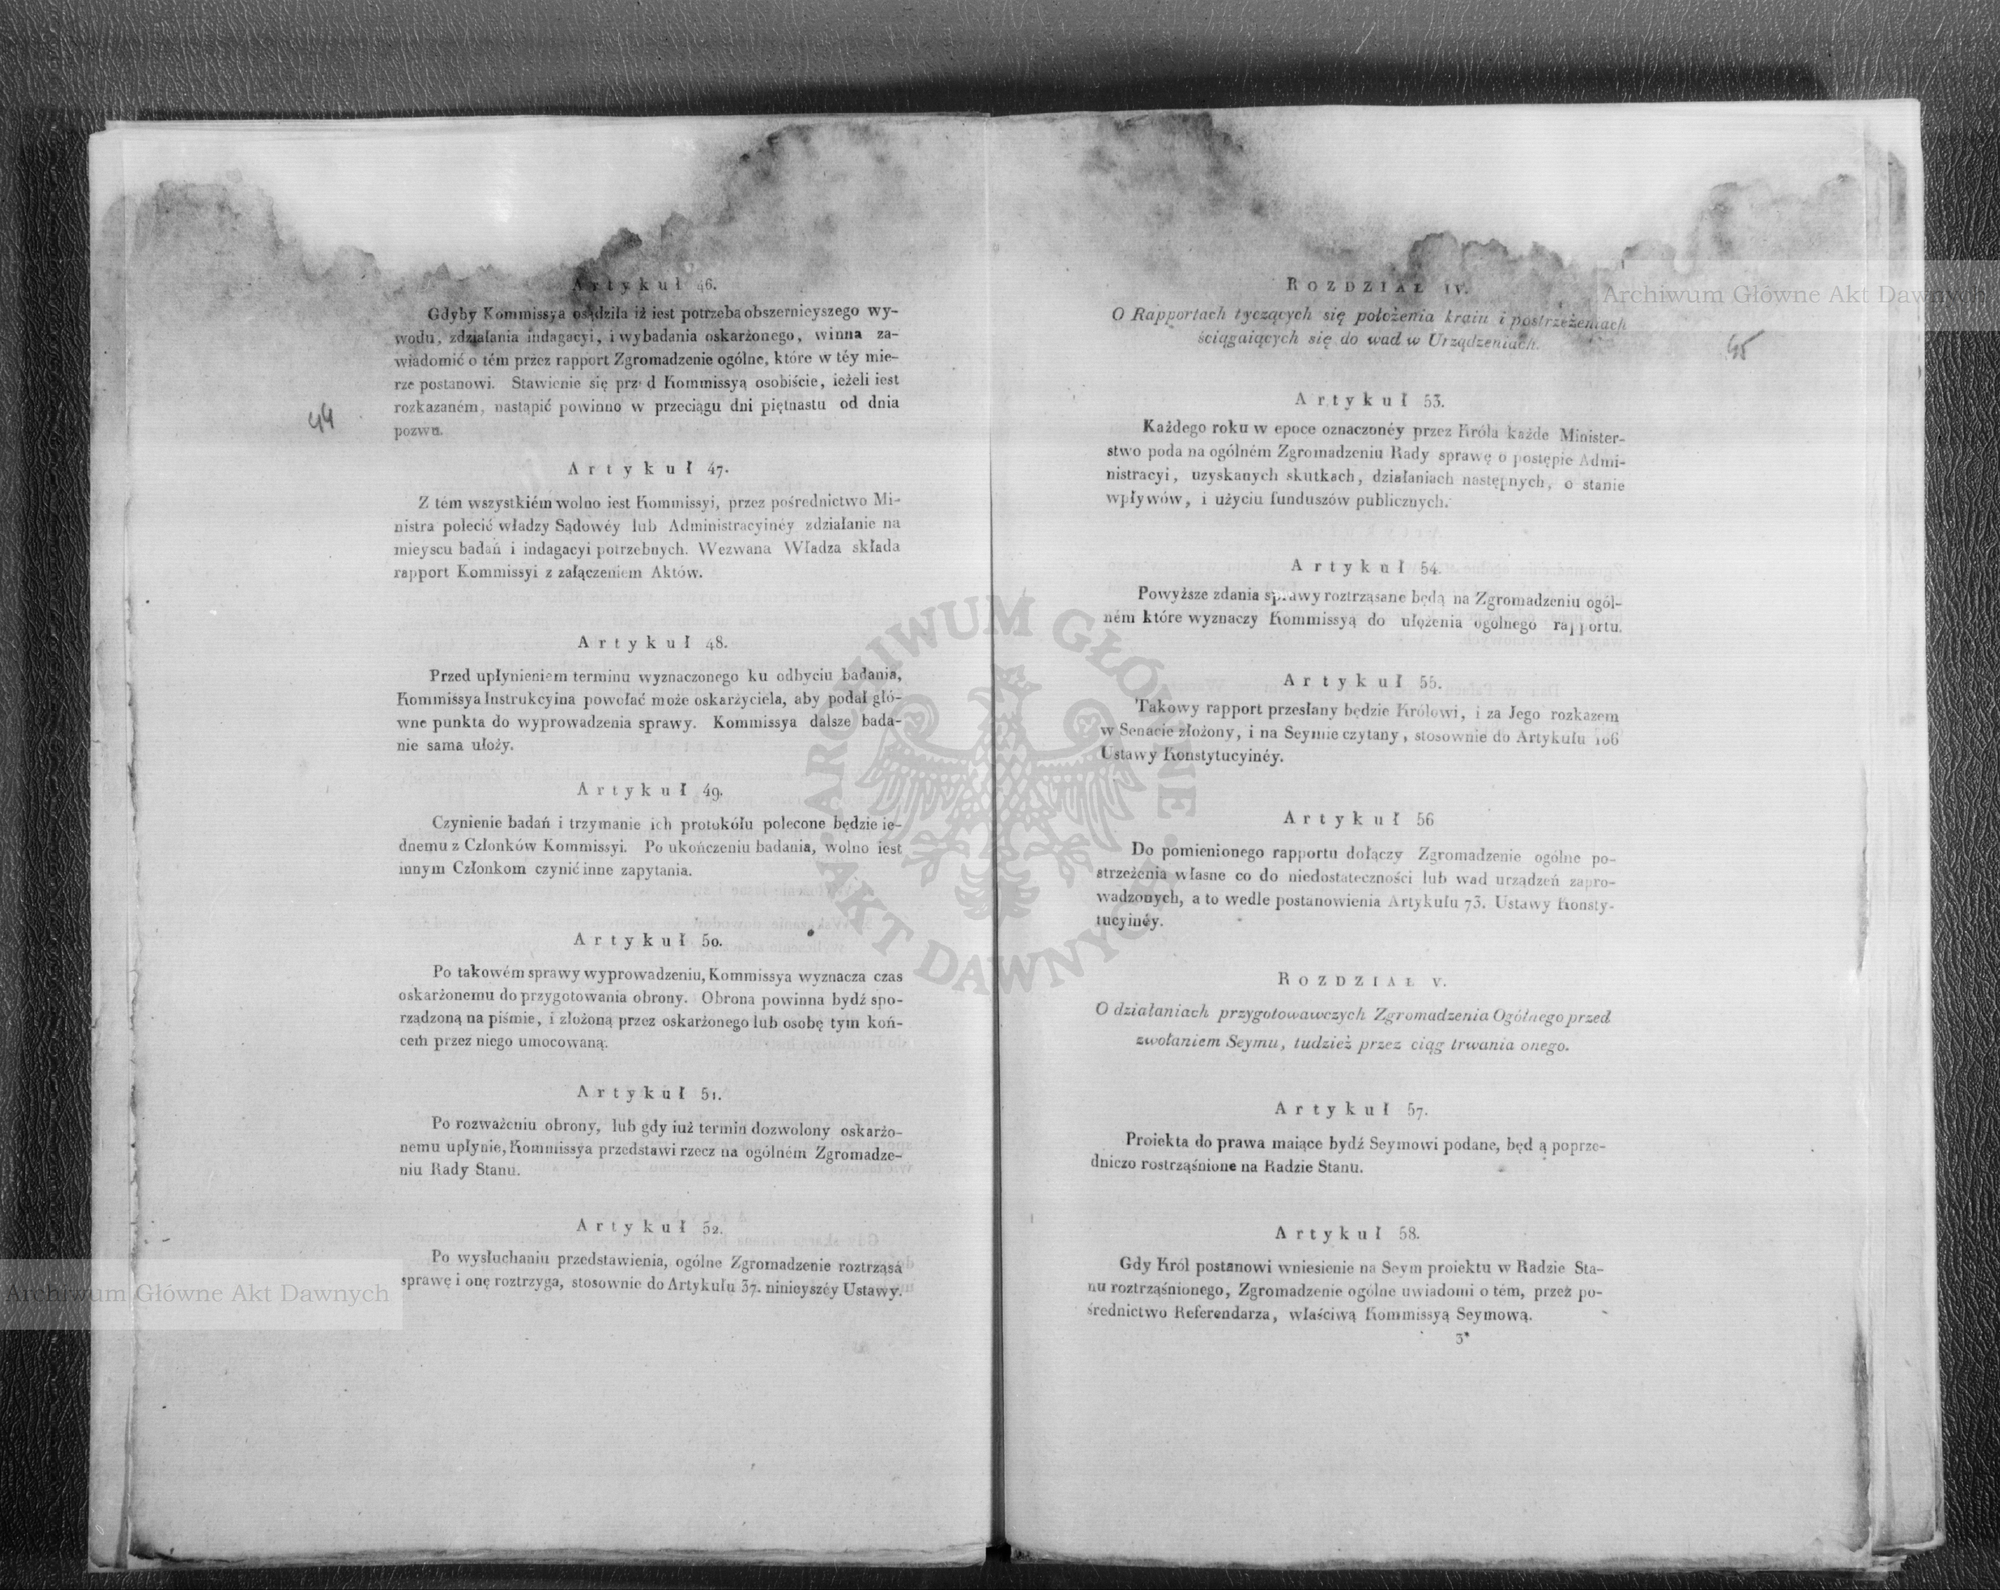 Artykuł 46.
Gdyby Kommissya osądziła iż iest potrzeba obszernieyszego wy-
wodu, zdziałania indagacyi, i wybadania oskarżonego, winna za-
wiadomić o tém przez rapport Zgromadzenie ogólne, które w téy mie-
rze postanowi. Stawienie się przed Kommissyą osobiście, ieżeli iest
rozkazaném, nastąpić powinno w przeciągu dni piętnastu od dnia
pozwu.
44
Artykuł 47.
Z tém wszystkiém wolno iest Kommissyi, przez pośrednictwo Mi-
nistra polecić władzy Sądowéy lub Administracyinéy zdziałanie na
mieyscu badań i indagacyi potrzebnych. Wezwana Władza składa
rapport Kommissyi z załączeniem Aktów.
Artykuł 48.
Przed upłynieniem terminu wyznaczonego ku odbyciu badania,
Kommissya Instrukcyina powołać może oskarżyciela, aby podał głó-
wne punkta do wyprowadzenia sprawy. Kommissya dalsze bada-
nie sama ułoży.
Artykuł 49.
Czynienie badań i trzymanie ich protokółu polecone będzie ie-
dnemu z Członków Kommissyi. Po ukończeniu badania, wolno iest
innym Członkom czynić inne zapytania.
Artykuł 50.
Po takowém sprawy wyprowadzeniu, Kommissya wyznacza czas
oskarżonemu do przygotowania obrony. Obrona powinna bydź spo-
rządzoną na piśmie, i złożoną przez oskarżonego lub osobę tym koń-
cem przez niego umocowaną.
Artykuł 51.
Po rozważeniu obrony, lub gdy iuż termin dozwolony oskarżo-
nemu upłynie, Kommissya przedstawi rzecz na ogólném Zgromadze-
niu Rady Stanu.
Artykuł 52.
Po wysłuchaniu przedstawienia, ogólne Zgromadzenie roztrząsa
sprawę i onę roztrzyga, stosownie do Artykułu 37. ninieyszéy Ustawy.
ROZDZIAŁ IV.
O Rapportach tyczących się położenia kraiu i postrzeżeniach
ściągaiących się do wad w Urządzeniach.
45
Artykuł 53.
Każdego roku w epoce oznaczonéy przez Króla każde Minister-
stwo poda na ogólném Zgromadzeniu Rady sprawę o postępie Admi-
nistracyi, uzyskanych skutkach, działaniach następnych, o stanie
wpływów, i użyciu funduszów publicznych.
Artykuł 54.
Powyższe zdania sprawy roztrząsane będą na Zgromadzeniu ogól-
ném które wyznaczy Kommissyą do ułożenia ogolnego rapportu.
Artykuł 55.
Takowy rapport przesłany będzie Królowi, i za Jego rozkazem
w Senacie złożony, i na Seymie czytany, stosownie do Artykułu 106
Ustawy Konstytucyinéy.
Artykuł 56
Do pomienionego rapportu dołączy Zgromadzenie ogólne po-
strzeżenia własne co do niedostateczności lub wad urządzeń zapro-
wadzonych, a to wedle postanowienia Artykułu 73. Ustawy Konsty-
tucyinéy.
ROZDZIAŁ V.
O działaniach przygotowawczych Zgromadzenia Ogólnego przed
zwołaniem Seymu, tudzież przez ciąg trwania onego.
Artykuł 57.
Proiekta do prawa maiące bydź Seymowi podane, będą poprze-
dniczo rostrząśnione na Radzie Stanu.
Artykuł 58.
Gdy Król postanowi wniesienie na Seym proiektu w Radzie Sta-
nu roztrząśnionego, Zgromadzenie ogólne uwiadomi o tém, przez po-
średnictwo Referendarza, właściwą Kommissyą Seymową.
3*
Archiwum Główne Akt Dawnych
Archiwum Główne Akt Dawnych
ARCHIWUM GŁÓWNE AKT DAWNYCH